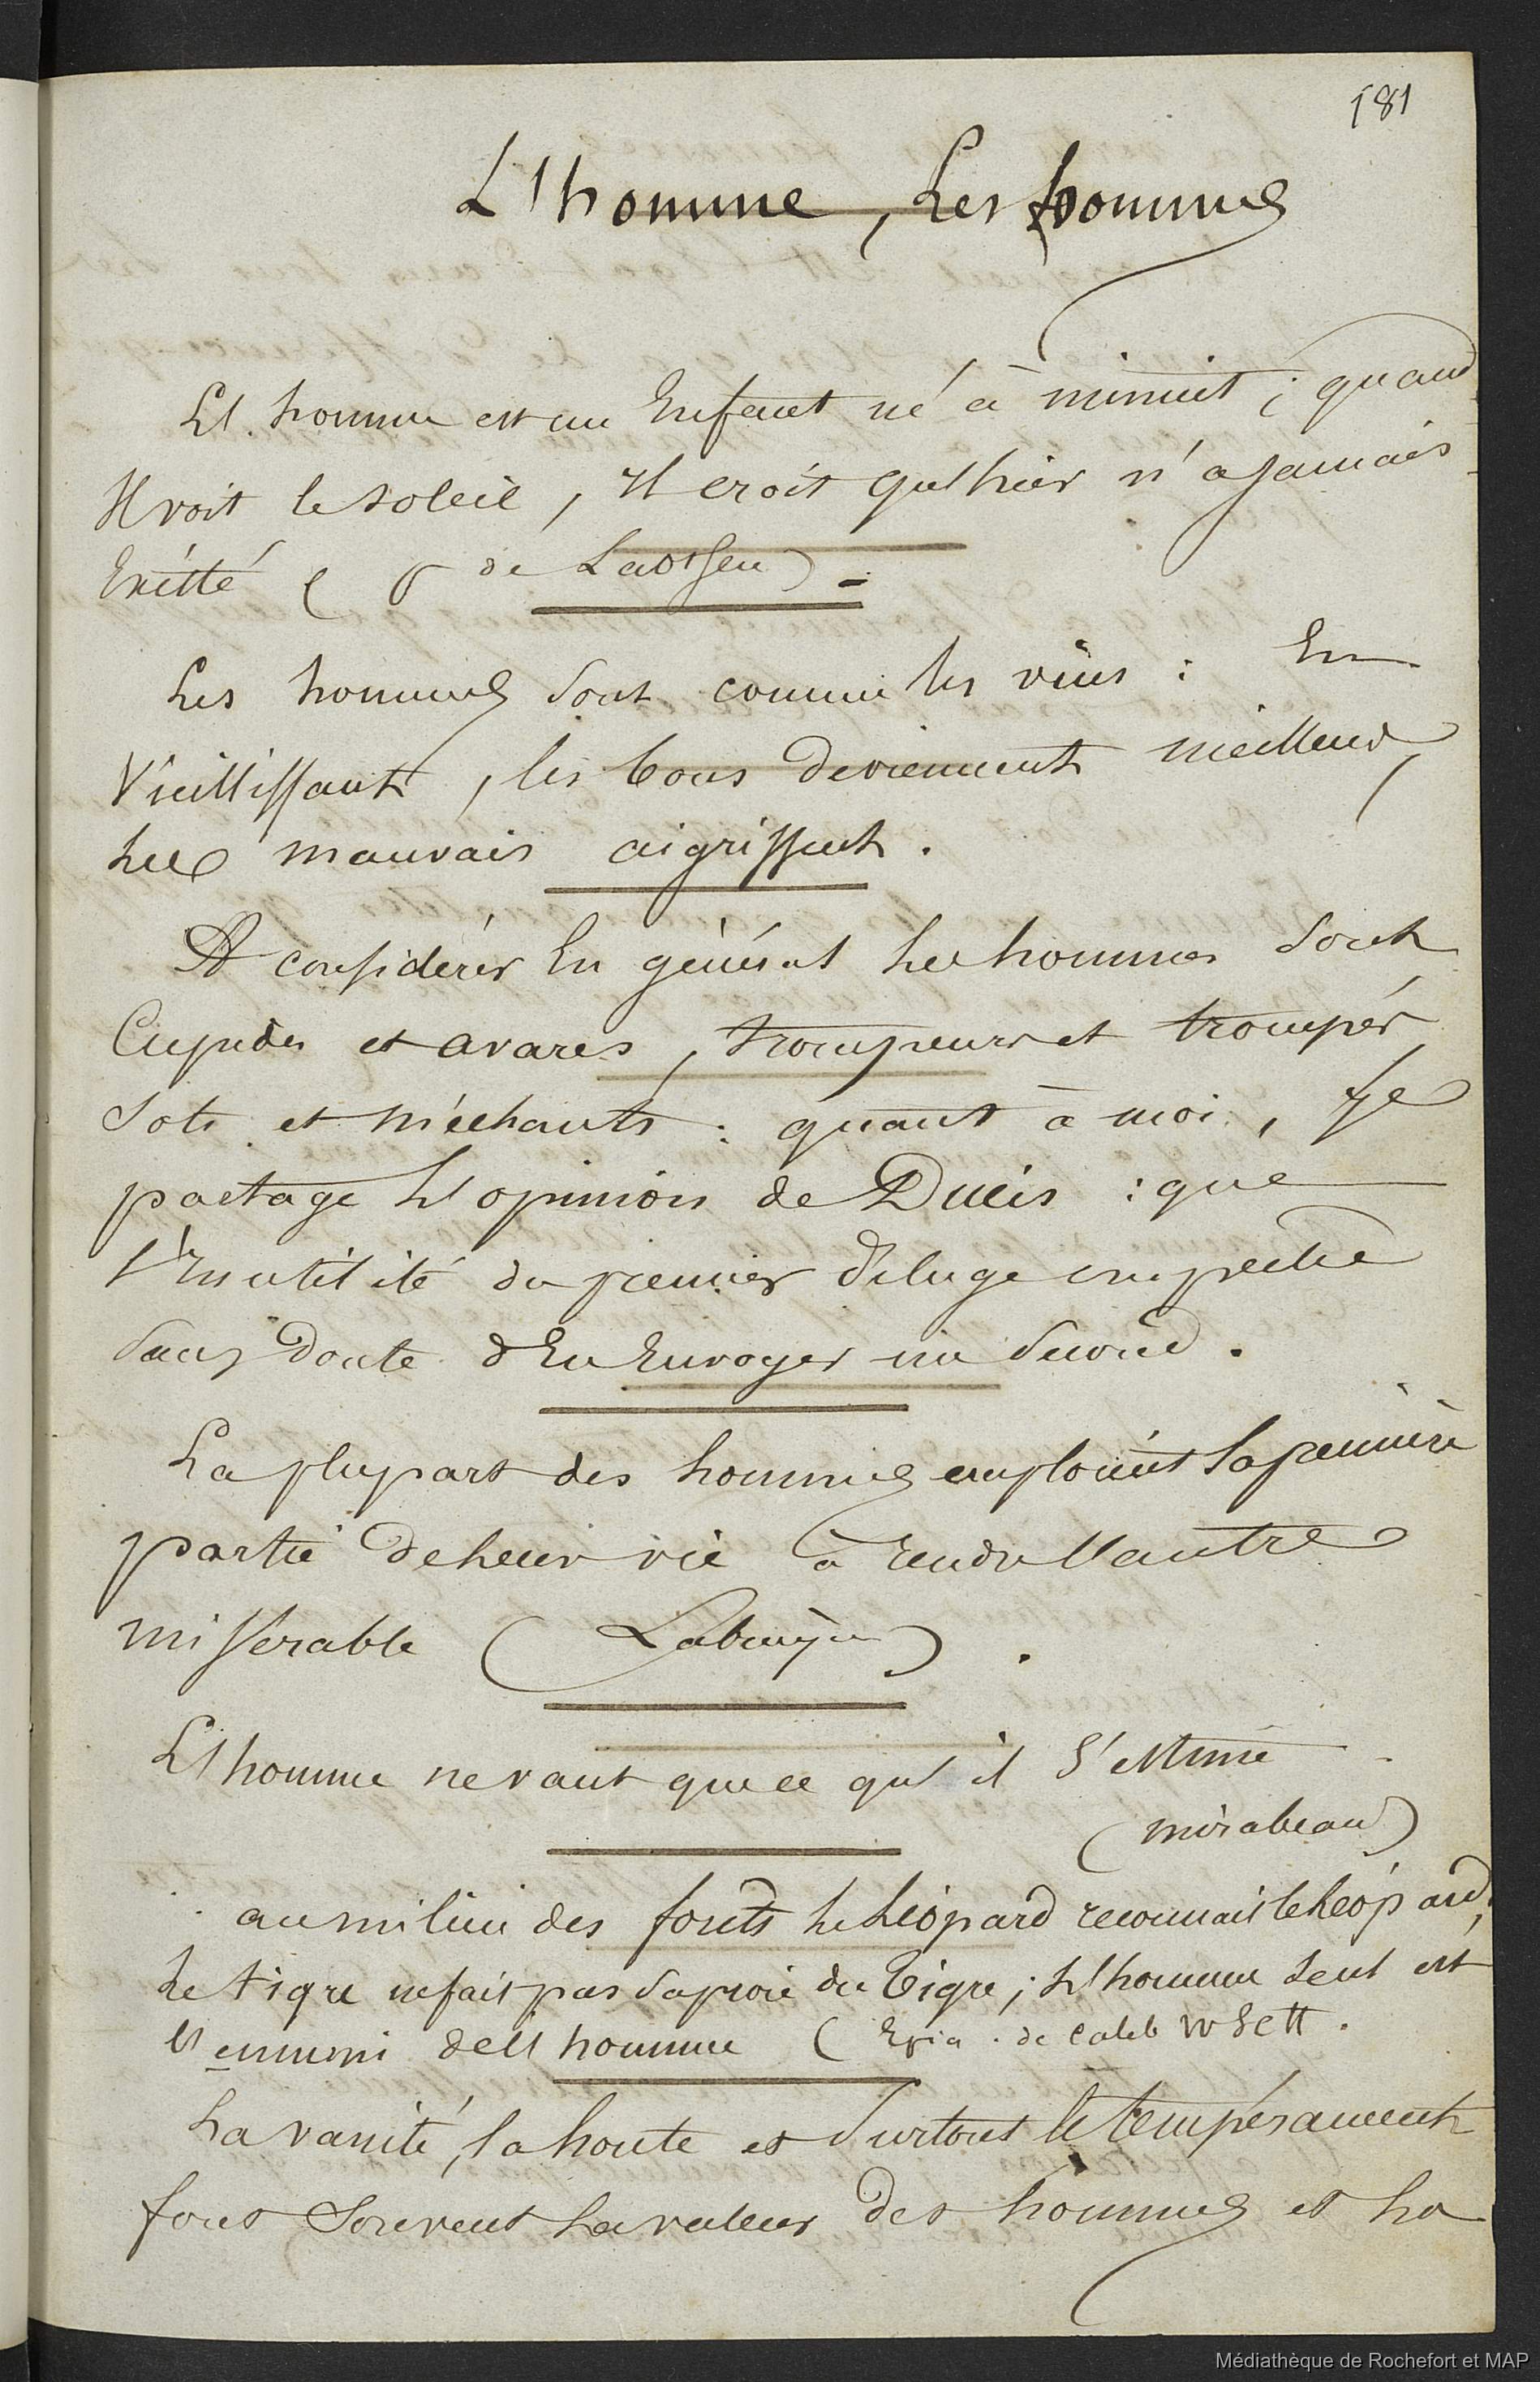 181
L'homme, Les hommes
L'homme est un Enfant né à minuit ; quand
Il voit le soleil, Il croit qu'hier n'a jamais
Existé ( de Laotseu)
Les hommes sont comme les vins : En
Vieillissant, les bons deviennent meilleurs,
Les mauvais aigrissent.
A considérer En général Les hommes sont
Cupides et avares, trompeurs et trompés
Sots et méchants : quant à moi, Je
partage L'opinion de Ducis : que
l'Inutilité du premier Déluge empeche
Sans Doute d'En Envoyer un Second.
La plupart des hommes emploient La première
partie De Leur vie à rendre L'autre
misérable (Labruyère).
L'homme ne vaut que ce qu'il S'estime
(mirabeau)
au milieu des forêts Le Léopard reconnait le Léopard,
Le tigre ne fait pas Sa proie du Tigre ; L'homme Seul est
l'ennemi de L'homme ( de Caleb
La vanité, la honte et Surtout le tempérament
font Souvent La valeur Des hommes et La
Médiathèque de Rochefort et MAP